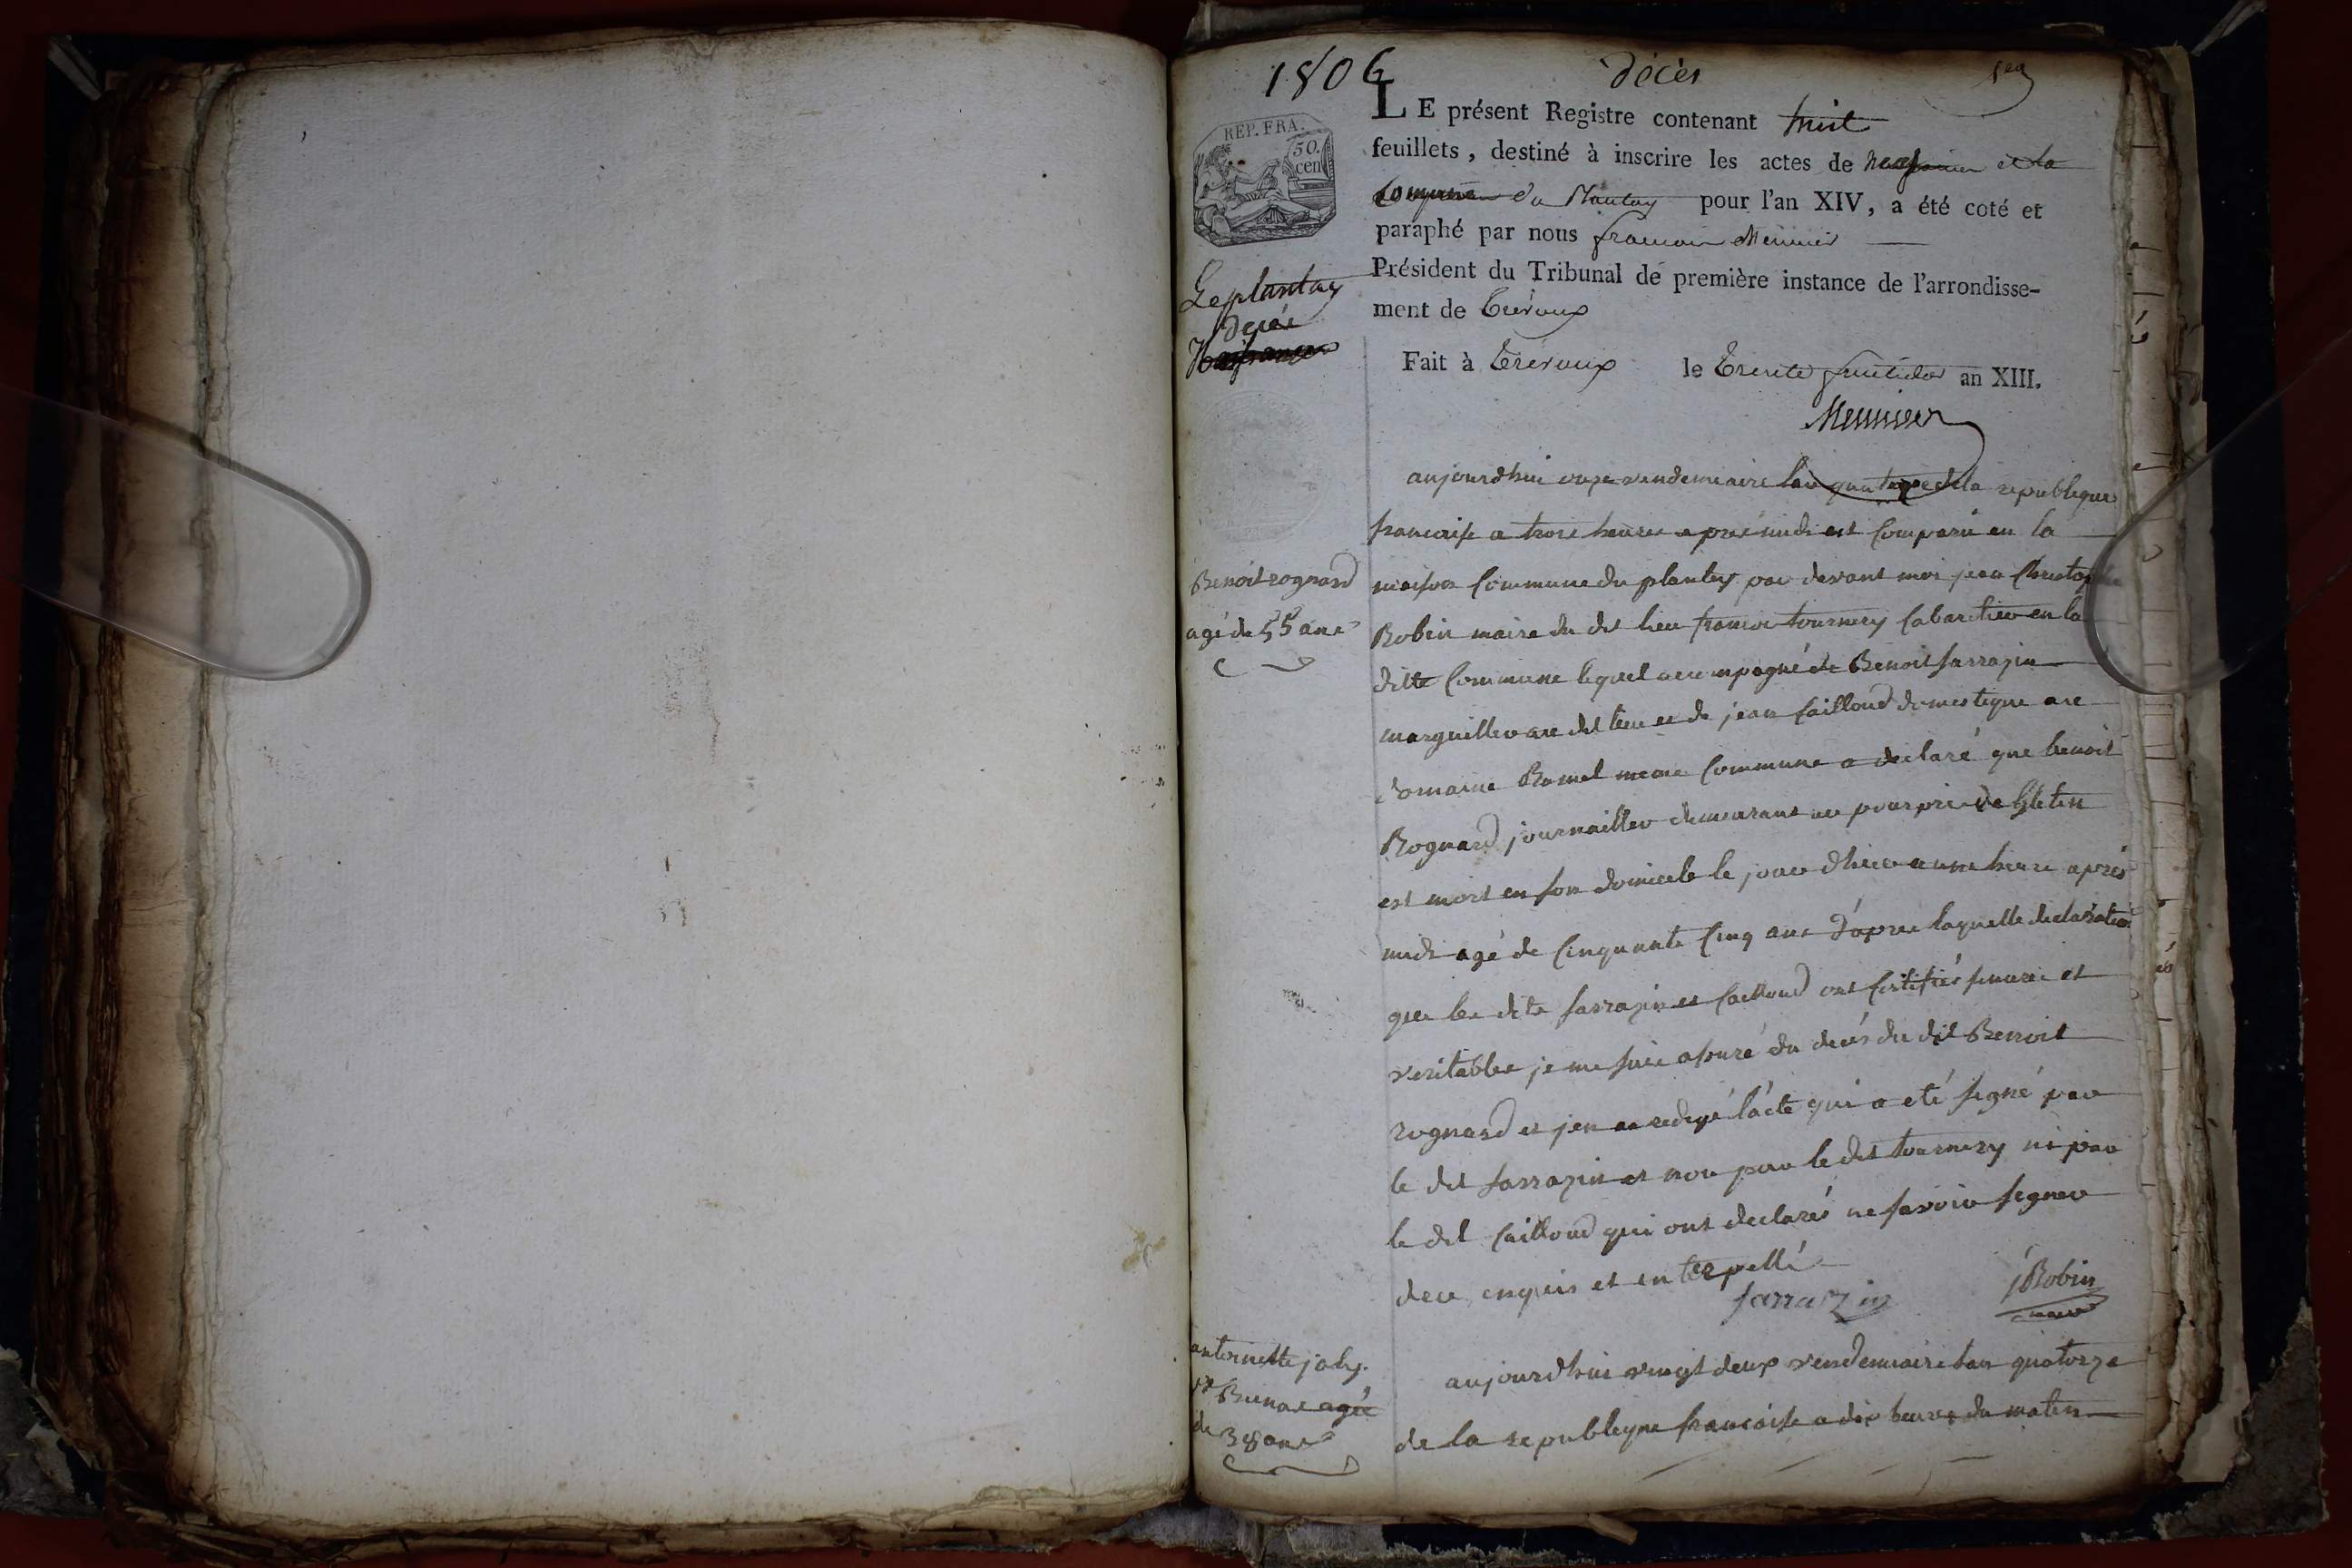 1806
décès
REP. FRA.
50.
cen
LE présent Registre contenant huit
feuillets, destiné à inscrire les actes de
commune du Plantay pour l'an XIV, a été coté et
paraphé par nous françois Meunier
Président du Tribunal de première instance de l'arrondisse-
ment de Trévoux
Fait à Trévoux le Trente fructidor an XIII.
Meunier
Le plantay
décés
Naissances
Benoit rognard
agé de 55 ans
aujourdhui onze vendemiaire lan quatorze de la republique
francaise a trois heures aprés midi est comparu en la
maison commune du plantay par devant moi jean Christop
Robin maire du dit lieu francois tournery cabaretier en la
ditte commune lequel accompagné de Benoit sarrazin
marguillier au dit lieu et de jean cailloud domestique au
domaine Ramel meme commune a declaré que benoit
Rognard journaillier demeurant au pourpris de
est mort en son domicile le jour dhier a une heure aprés
midi agé de cinquante cinq ans d'apres laquelle declaration
que les dits sarrazin et cailloud ont certifiés sincere et
veritable je me suis assuré du decés du dit Benoit
rognard et jen ai redigé lácte qui a eté signé par
le dit sarrazin et non par le dit tournery ni par
le dit cailloud qui ont declarés ne savoir signer
de ce enquis et interpellé
sarrazin
jRobin
maire
antoinette joly
Brunas agée
de 38 ans
aujourdhui vingt deux vendemiaire lan quatorze
de la republique francaise a dix heures du matin